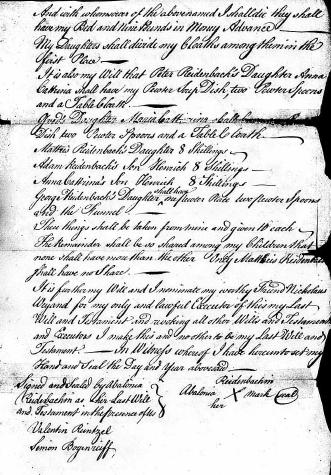 And with whomsoever of the abovenamed I shall die they shall
have my Bed and Nine Pounds in Money Advance
My Daughters shall divide my Cloaths among them in the
first Place
It is also my Will that Peter Reidenbach's Daughter Anna
Cattrina Shall have my Pewter Dish, two Pewter Spoons
and a Table Cloath
Daughter Maria
Dish two Pewter Spoons and a Table Cloath
Matthis Reidenbach's Daughter 8 Shillings
Adam Reidenbach's Son Henrich 8 Shillings
Anna Cattrina's Son Henrich 8 Shillings
George Reidenbach's Daughter shall have one Pewter two Pewter Spoons
and the Funnel
These things shall be taken from mine and given to each
The Remainder shall be so shared among my Children that
none shall have more than the other Only Matthis Reidenbach
shall have no Share
It is farther my Will and I nominate my worthy Friend Nicholaus
Weyand for my only and lawful Executor of this my Last
Will and Testament and revoking all other Wills and Testaments
and Executors I make this and no other to be my Last Will and
Testament. In Witness whereof I have hereunto set my
Hand and Seal the Day and Year abovesaid
Signed and Sealed by Abalonia
Reidenbachin as her Last Will
and Testament in the presence of us
Reidenbachin
Abalonia X mark Seal
her
Valentin Reintzel
Simon Bogenreiff